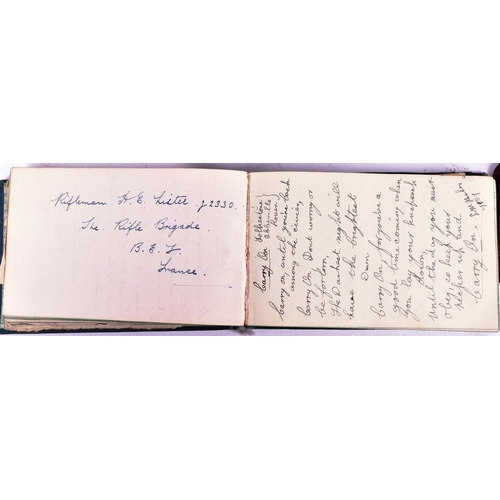 Rifleman A. E. Lister J2330.
The Rifle Brigade.
B. E. F
France.
Carry On
Carry on, until you're back
among the
Carry On. Dont worry or
be forlorn,
The Darkest night will
have the brightest
Dawn
Carry On, for you've a
good time coming, when
You lay your knapsack
down,
Until the day you must
obey, so keep your
pecker up and
Carry On.